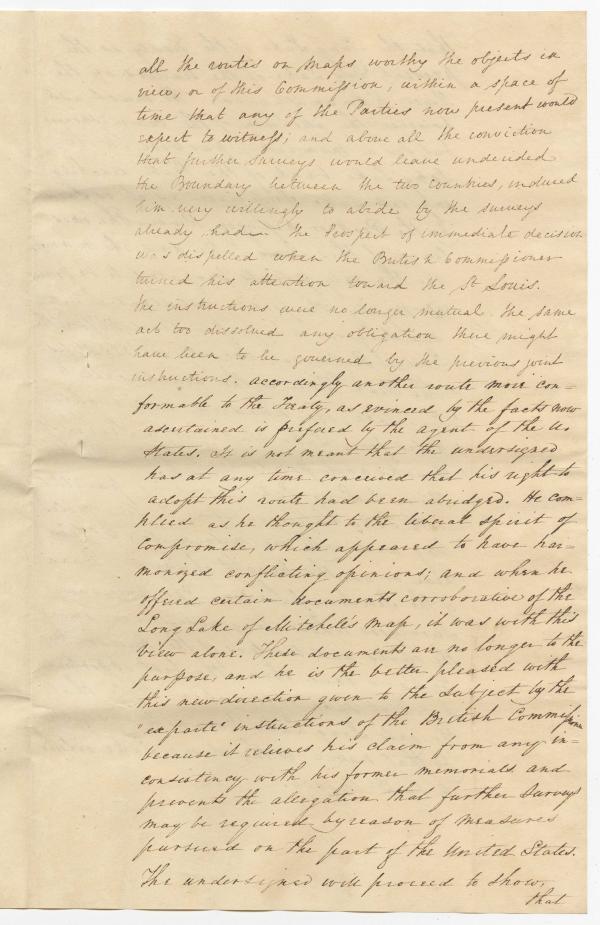 all the routes on maps worthy the objects in
view, or of this Commission, within a space of
time that any of the Parties now present would
expect to witness; and above all the conviction
that further surveys would leave undecided
the Boundary between the two countries, induced
him very willingly to abide by the surveys
already had. The Prospect of immediate decision
was dispelled when the British Commissioner
turned his attention toward the St Louis.
the instructions were no longer mutual. the same
act too dissolved any obligation there might
have been to be governed by the previous joint
instructions. accordingly another route more con=
formable to the Treaty, as evinced by the facts now
ascertained is prefered by the agent of the U.
States. It is not meant that the undersigned
has at any time conceived that his right to
adopt this route had been abridged. He com=
plied as he thought to the liberal spirit of
Compromise, which appeared to have har=
monized conflicting opinions; and when he
offered certain documents corroborative of the
Long Lake of Mitchell's map, it was with this
view alone. These documents are no longer to the
purpose, and he is the better pleased with
this new direction given to the Subject by the
"exparte" instructions of the British Commissioner
because it relieves his claim from any in=
consistency with his former memorials and
prevents the allegation that further Surveys
may be required by reason of measures
pursued on the part of the United States.
The undersigned will proceed to show,
that